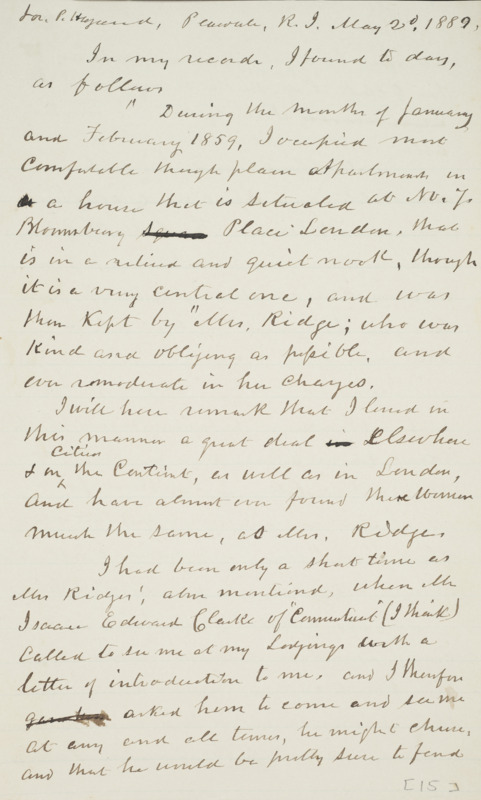 Jos. P. Hazard, Peacedale, R. I. May 2d, 1889.
In my records, I found to day,
as follows
" During the months of January
and February 1859, I occupied most
Comfortable though plain Apartments in
a house that is situated at No. 7.
Bloomsbury Place London, that
is in a retired and quiet nook, though
it is a very central one, and was
then Kept by "Mrs. Ridge; who was
Kind and obliging as possible, and
ever so moderate in her Charges.
I will here remark that I lived in
this manner a great deal in Elsewhere
Cities
& on the Continent, as well as in London,
And have almost ever found these Women
much the same, as Mrs. Ridge.
I had been only a short time at
Mrs Ridges', above mentioned, when Mr
Isaac Edward Clarke of "Connecticut" (I think)
Called to see me at my Lodgings with a
letter of introduction to me. and I therefore
asked him to come and see me
at any and all times, he might chuse,
and that he would be pretty sure to find
[15]